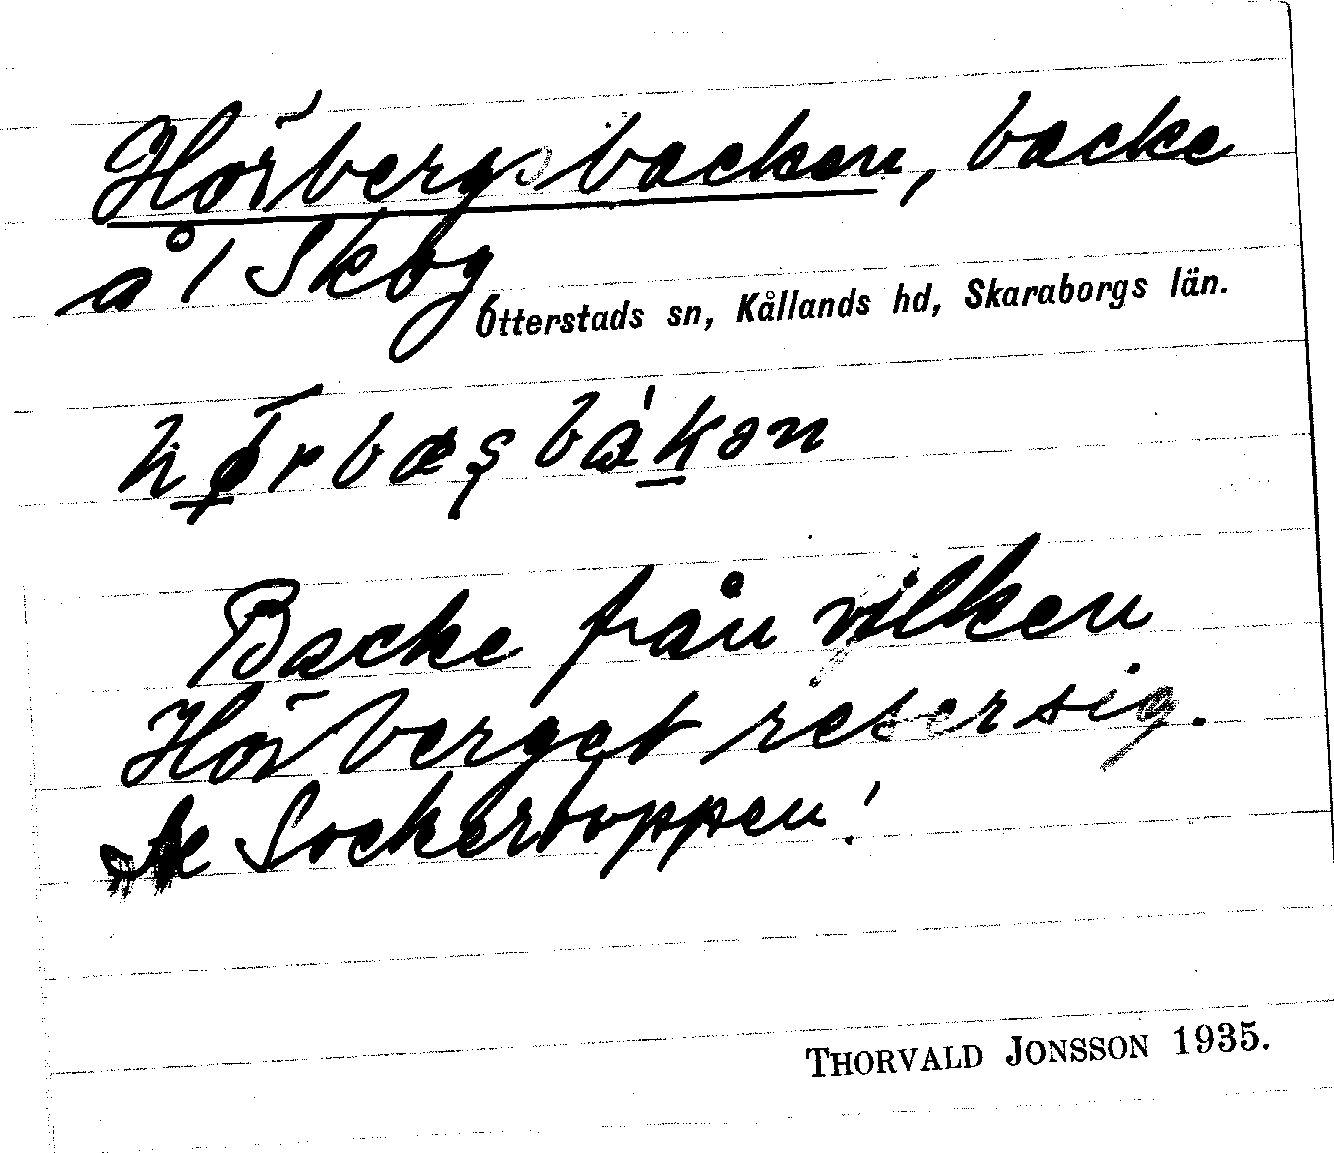 Hörbergsbacken, backe
å 1 Skog
Otterstads sn, Kållands hd, Skaraborgs län.
hørbæşbàkən
Backe från vilken
Hörberget reser sig.
Se Sockertoppen!
THORVALD JONSSON 1935.